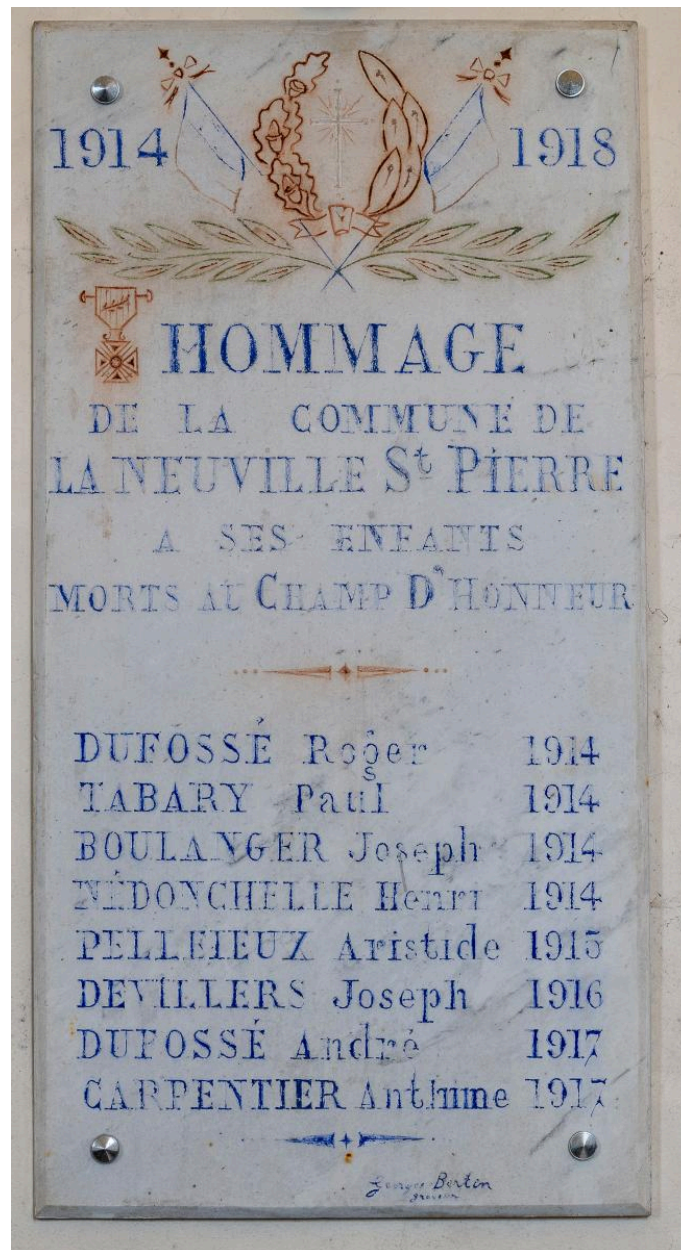 1914 1918
HOMMAGE
DE LA COMMUNE DE
LA NEUVILLE St PIERRE
A SES ENFANTS
MORTS AU CHAMP D'HONNEUR
DUFOSSÉ Roger 1914
TABARY Paul 1914
BOULANGER Joseph 1914
NÉDONCHELLE Henri 1914
PELLEIEUX Aristide 1915
DEVILLERS Joseph 1916
DUFOSSÉ André 1917
CARPENTIER Anthime 1917
Georges Bertin
graveur